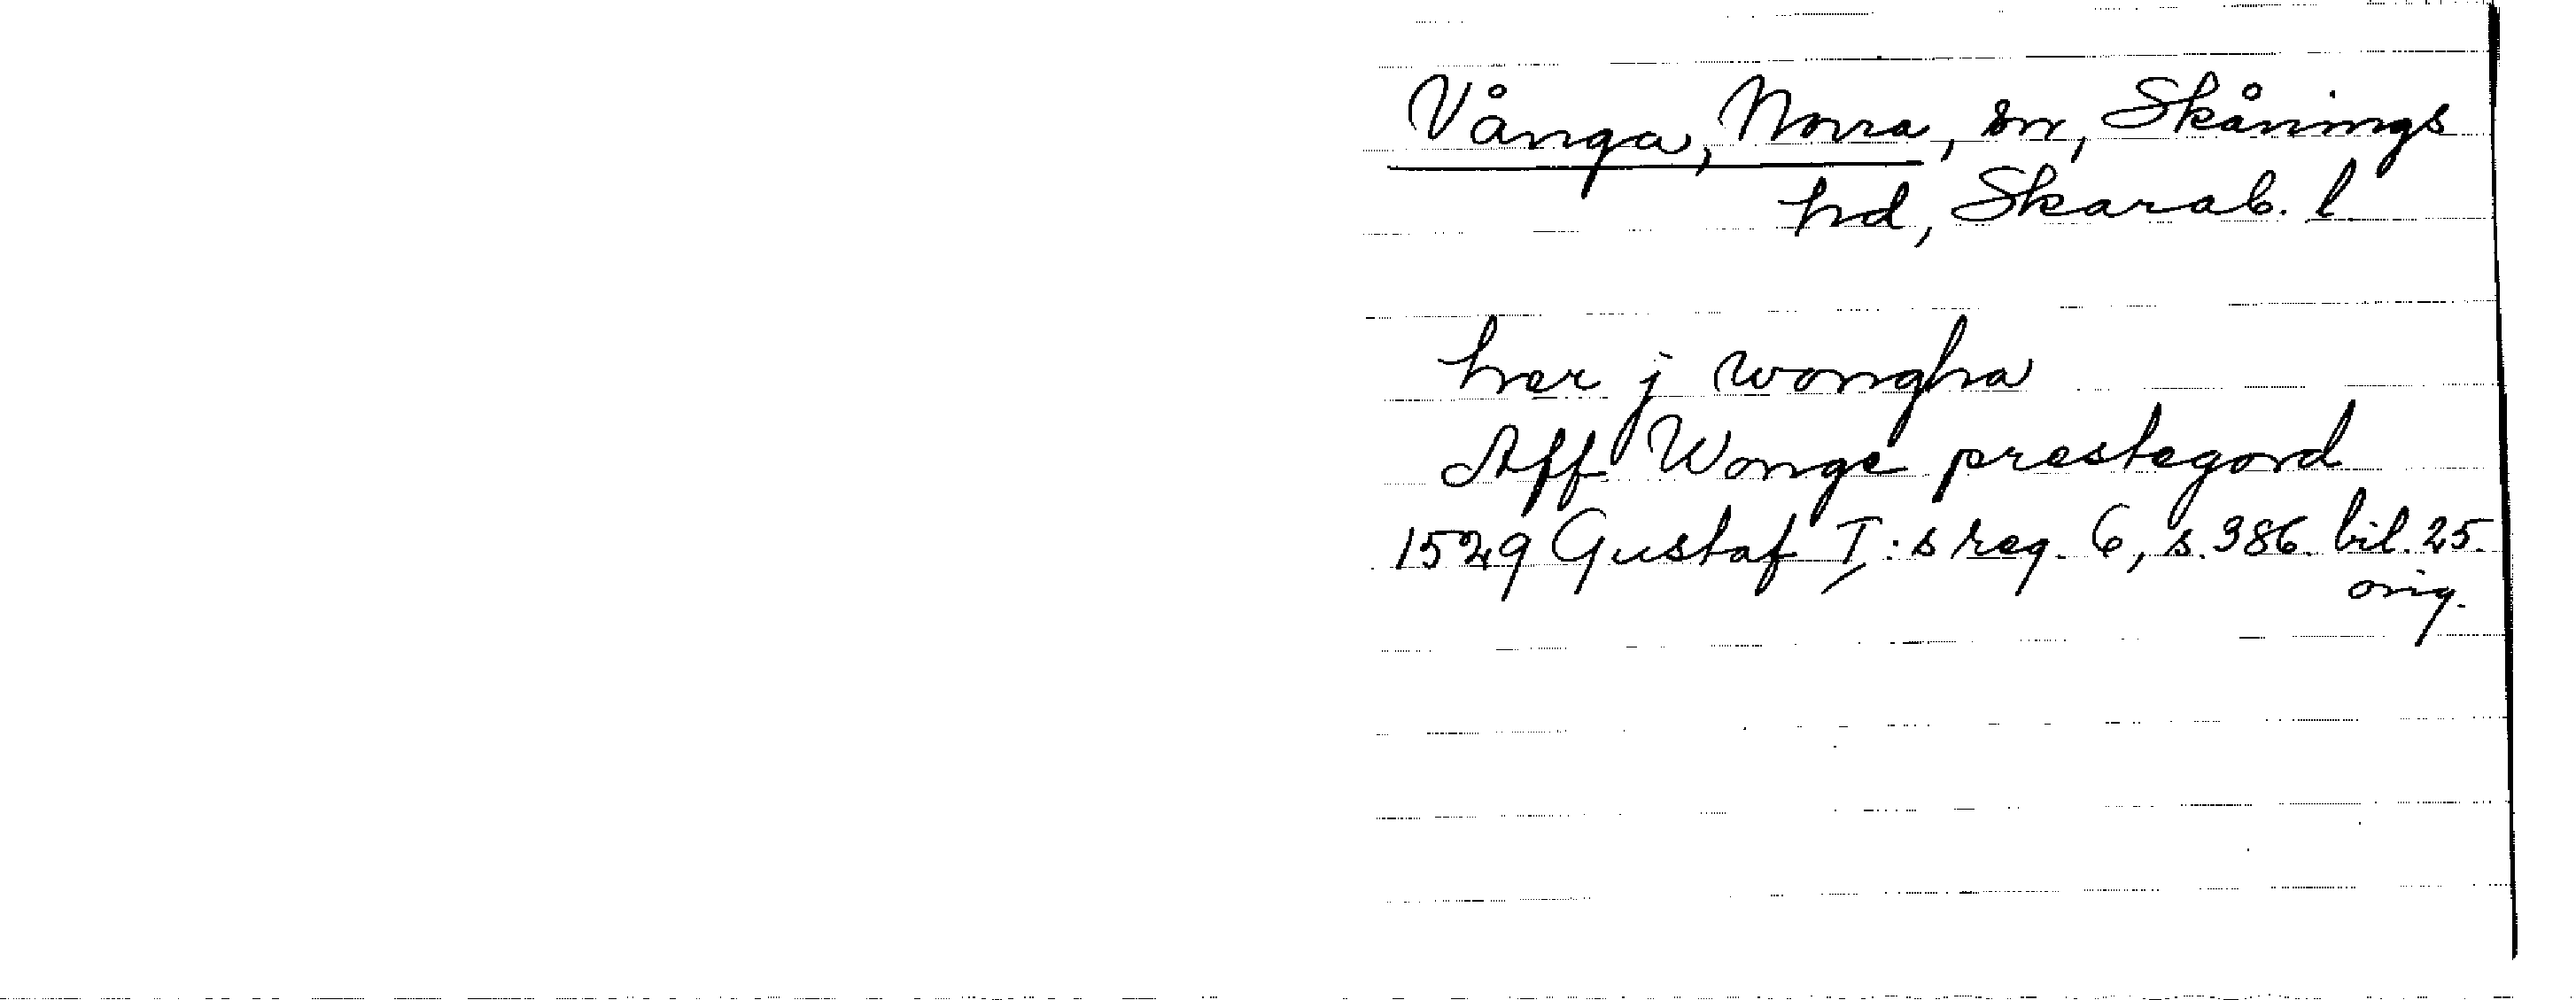 Vånga, Norra, sn, Skånings
hd, Skarab. l.
her j wongha
Aff Wonge prestegord
1529 Gustaf I:s reg. 6, s. 386. bil. 25.
orig.